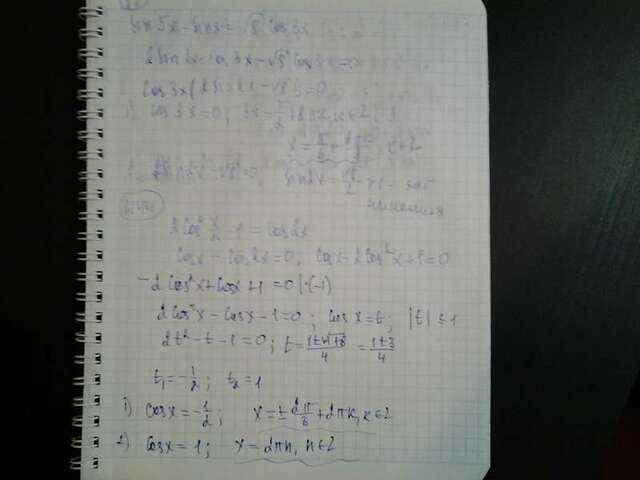 sin5x - sinx = √8 cos3x
2sin2x cos3x - √8 cos3x = 0
cos3x(2sin2x - √8) = 0
1) cos3x = 0; 3x = π/2 + πk, k∈Z
x = π/6 + πk/3, k∈Z
2sin2x - √8 = 0; sin2x = √8/2 >1 - нет
решения
2cos² x/2 - 1 = cos2x
cosx - cos2x = 0; cosx - 2cos²x + 1 = 0
-2cos²x + cosx + 1 = 0 | ·(-1)
2cos²x - cosx - 1 = 0; cosx = t, |t| ≤ 1
2t² - t - 1 = 0; t = (1±√1+8)/4 = (1±3)/4
t₁ = -1/2; t₂ = 1
1) cosx = -1/2; x = ± 2π/3 + 2πk, k∈Z
2) cosx = 1; x = 2πn, n∈Z